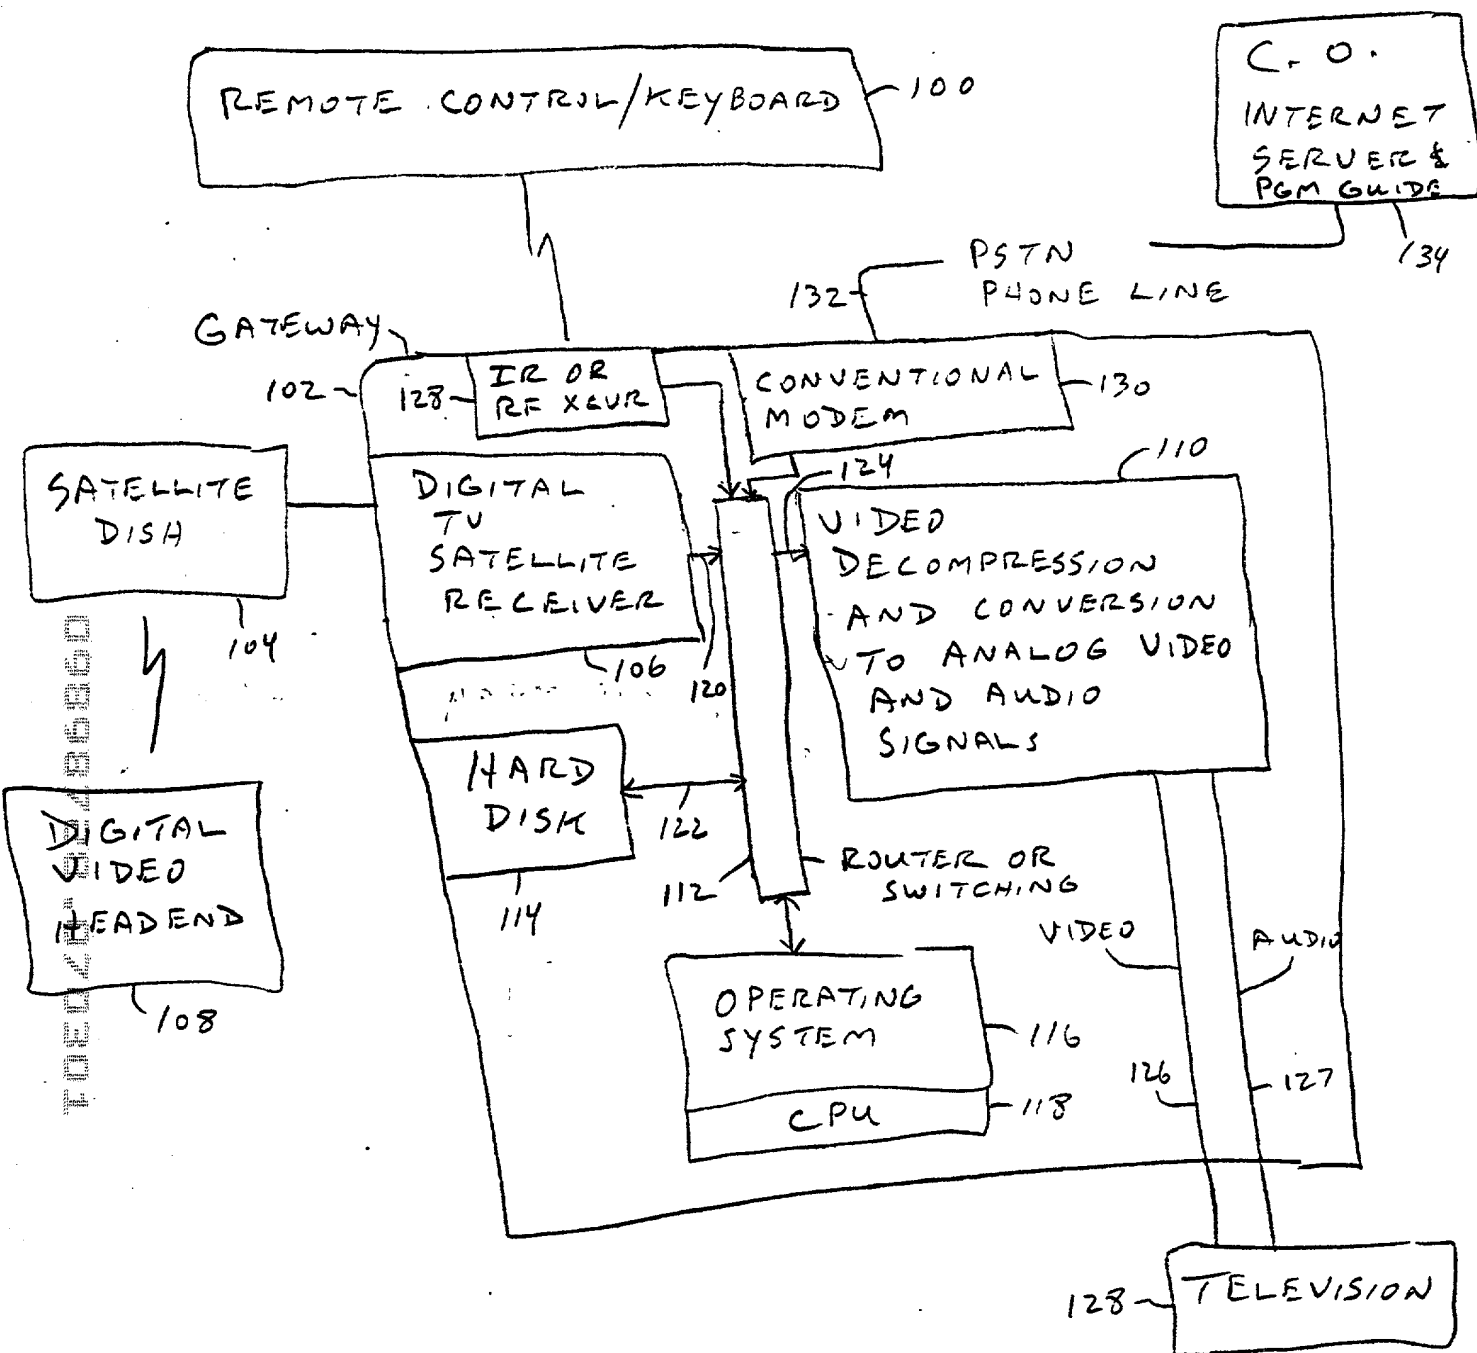 REMOTE CONTROL/KEYBOARD
100
C. O.
INTERNET
SERVER &
PGM GUIDE
134
PSTN
PHONE LINE
132
GATEWAY
102
128
IR OR
RF XCVR
CONVENTIONAL
MODEM
130
SATELLITE
DISH
104
DIGITAL
TV
SATELLITE
RECEIVER
106
120
124
110
VIDEO
DECOMPRESSION
AND CONVERSION
TO ANALOG VIDEO
AND AUDIO
SIGNALS
HARD
DISK
114
122
112
ROUTER OR
SWITCHING
DIGITAL
VIDEO
HEADEND
108
OPERATING
SYSTEM
116
CPU
118
VIDEO
AUDIO
126
127
128
TELEVISION